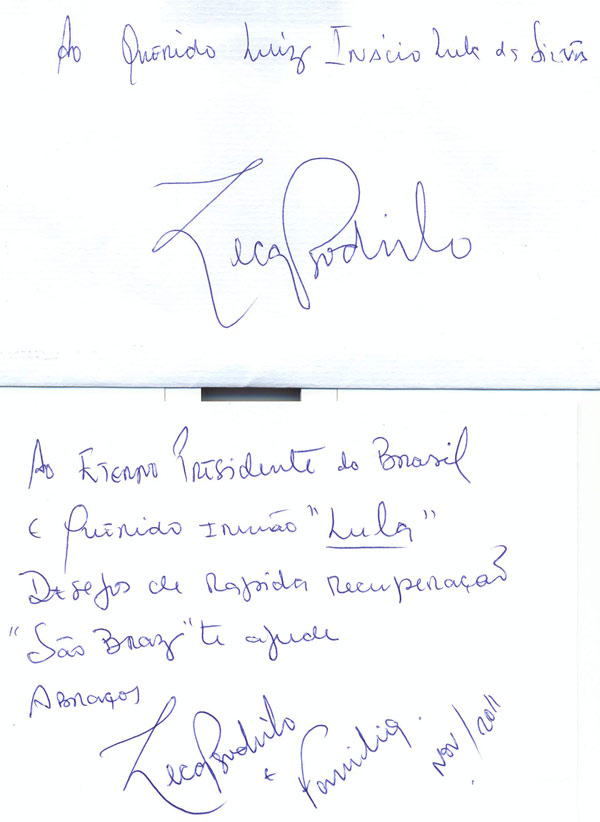 Ao Querido Luiz Inácio Lula da Silva
Zeca Pardinho
Ao Eterno Presidente do Brasil
e Querido Irmão "Lula"
Desejos de Rapida recuperação
"São Braz" te ajude
Abraços
Zeca Pardinho
e Familia. Nov/2011